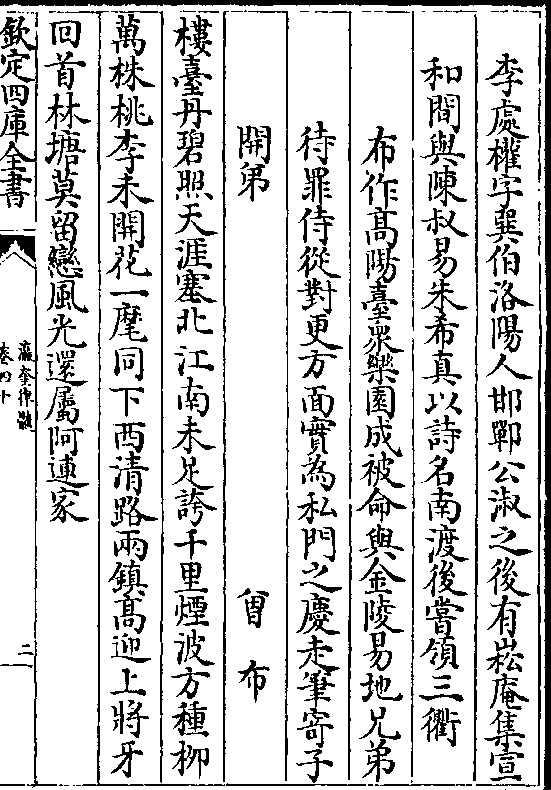 李處權字巽伯洛陽人邯鄲公淑之後有崧庵集宣
和間與陳叔易朱希真以詩名南渡後嘗領三衢
布作高陽臺眾樂園成被命與金陵易地兄弟
待罪侍從對更方面實為私門之慶走筆寄子
開弟
曾布
樓臺丹碧照天涯塞北江南未足誇千里煙波方種柳
萬株桃李未開花一麾同下西清路兩鎮高迎上將牙
回首林塘莫留戀風光還屬阿連家
欽定四庫全書
瀛奎律髓
卷四十
二